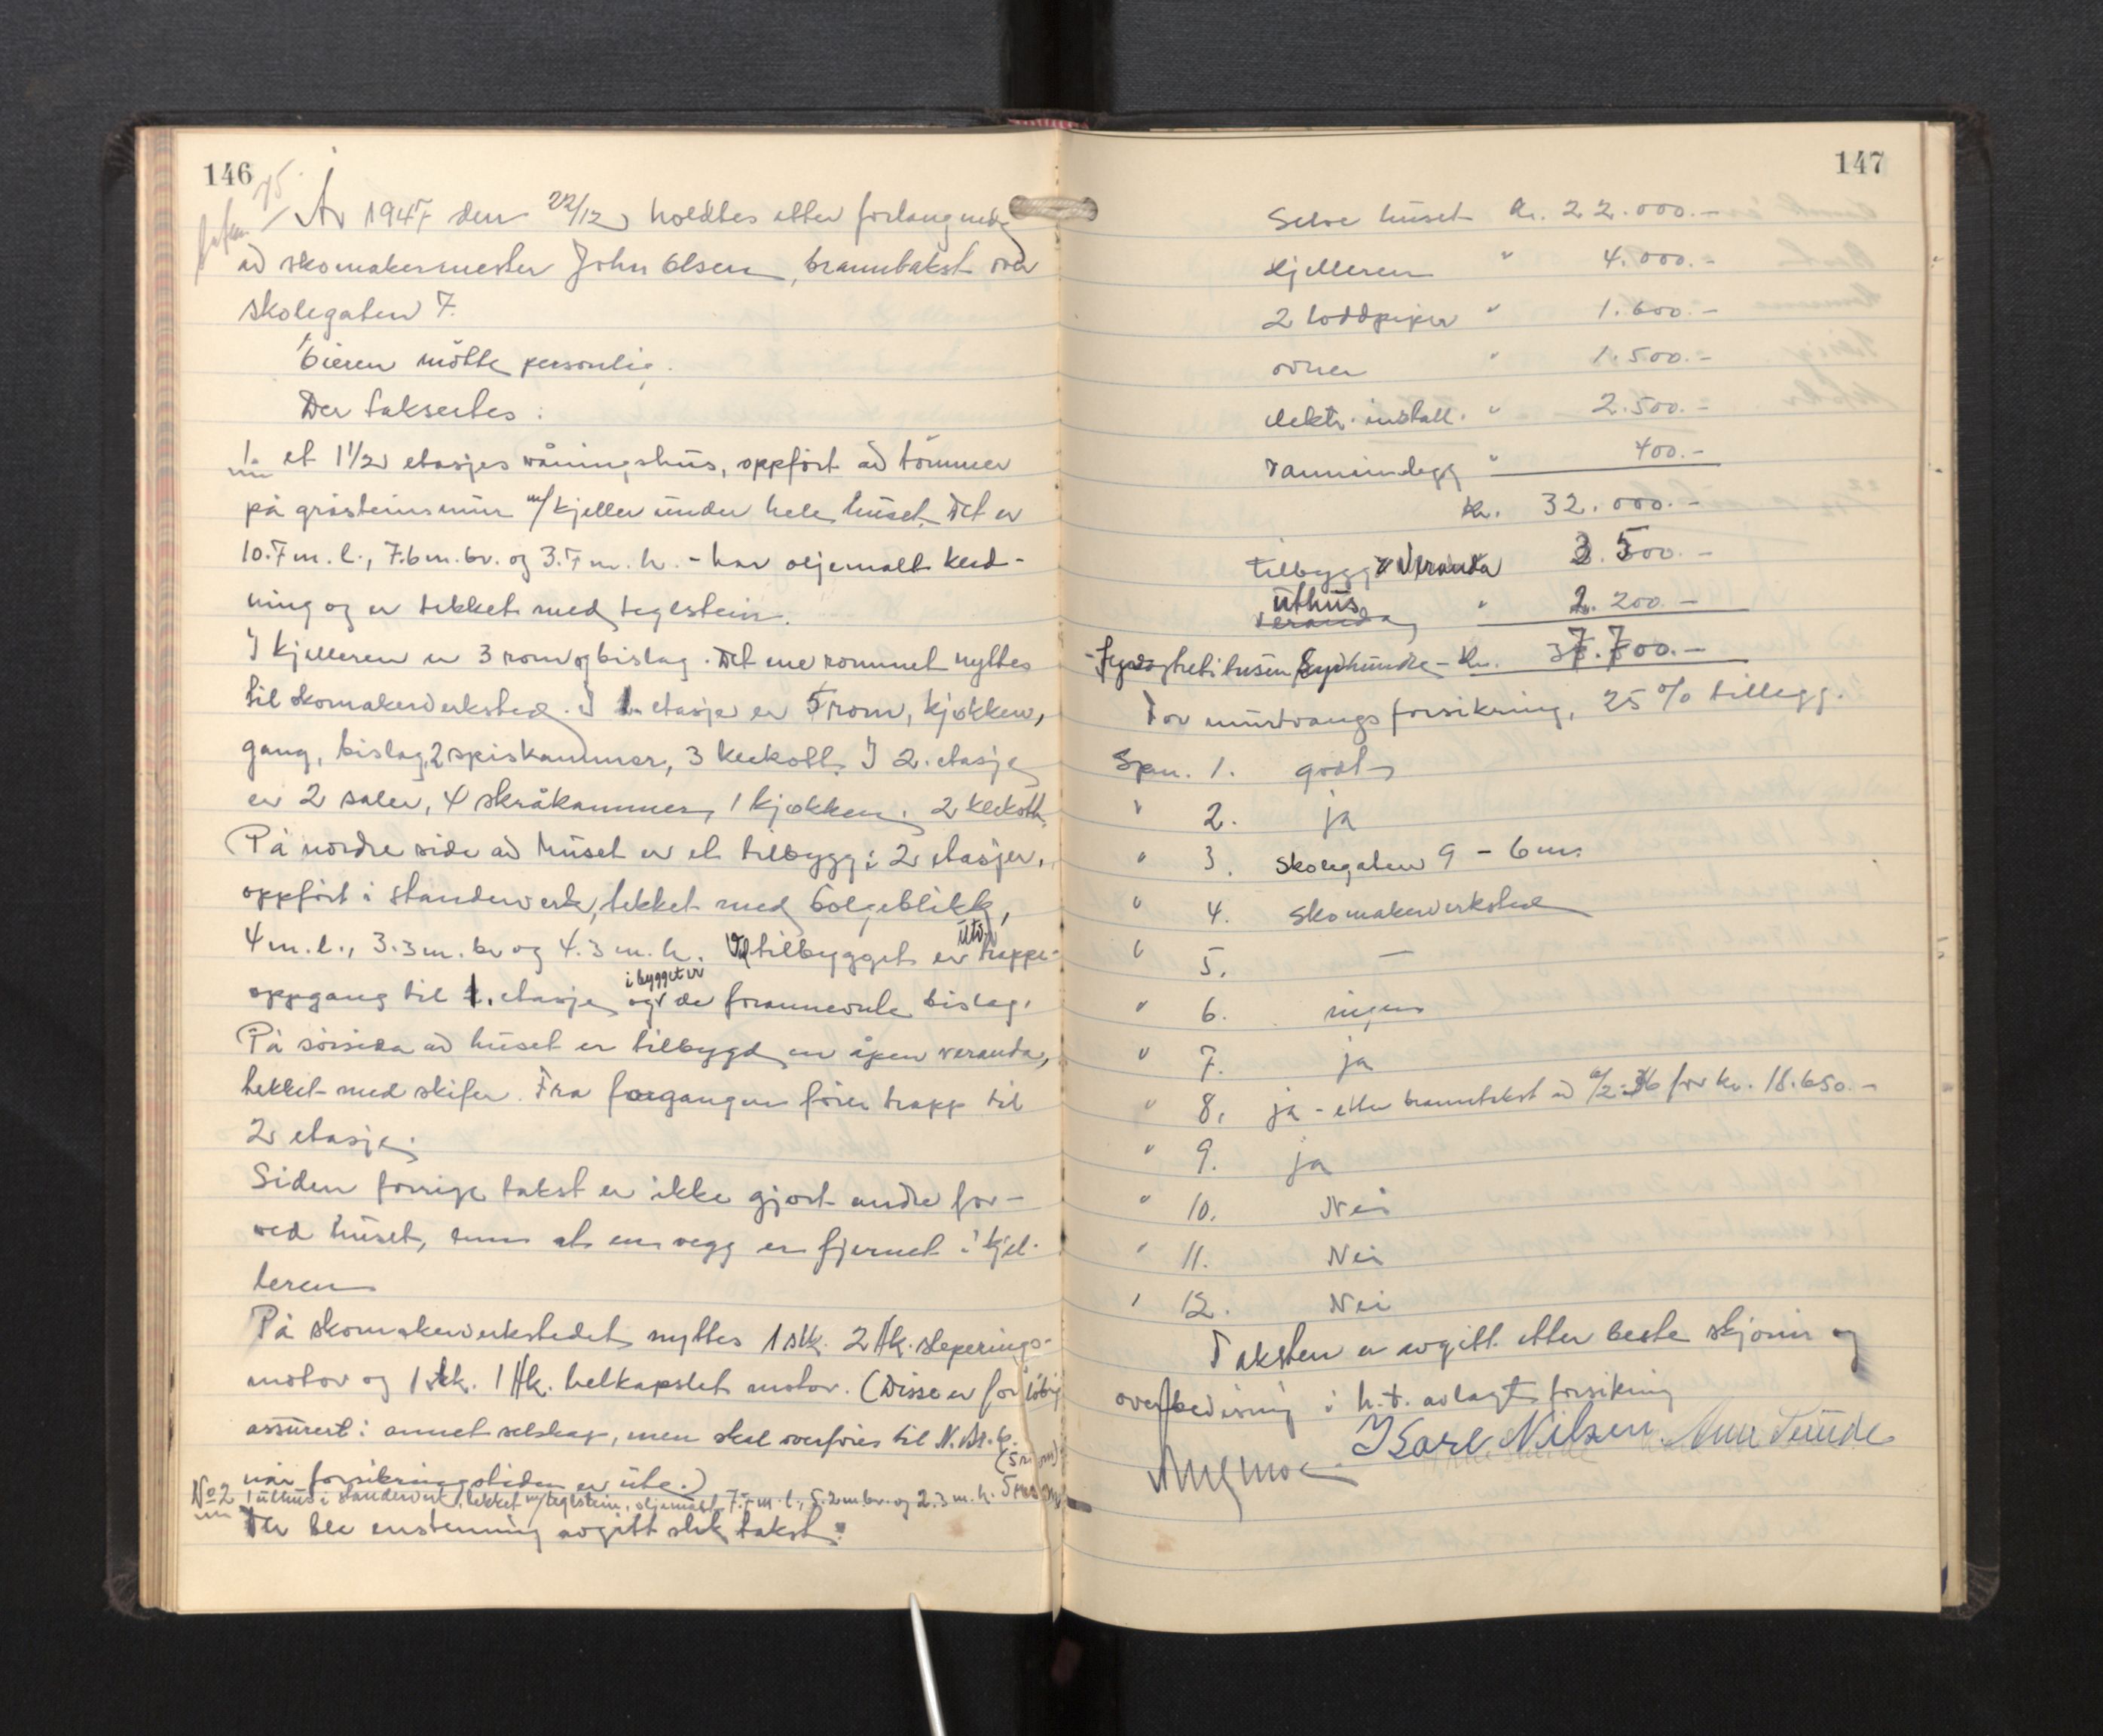 146
75.
År 1947 den 22/12 holdtes etter forlangende
av skomakermester John Olsen, branntakst over
Skolegaten 7.
Eieren møtte personlig.
Der taksertes:
1. et 1 1/2 etasjes våningshus, oppført av tømmer
på gråsteinsmur m/kjeller under hele huset. Det er
10.7 m. l., 7.6 m. br. og 3.7 m. h. - har oljemalt kled-
ning og er tekket med teglstein.
I kjelleren er 3 rom og bislag. Det ene rommet nyttes
til skomakerverksted. I 1. etasje er 5 rom, kjøkken,
gang, bislag, 2 spiskammer, 3 klekott. I 2. etasje
er 2 saler, 4 skråkammer, 1 kjøkken. 2 klekott.
På nordre side av huset er et tilbygg i 2 etasjer,
oppført i standerverk, tekket med bølgeblikk,
4 m. l., 3.3 m. br og 4.3 m. h. Ved tilbygget er utv. trappe-
oppgang til 1. etasje og i bygget er de forannevnte bislag.
På sørsida av huset er tilbygd en åpen veranda,
tekket med skifer. Fra forgangen fører trapp til
2 etasje.
Siden forrige takst er ikke gjort andre for-
ved huset, enn at en vegg er fjernet i kjel-
leren
På skomakerverkstedet nyttes 1 stk. 2 Hk. sleperings-
motor og 1 stk. 1 Hk. helkapslet motor. (Disse er foreløbig
assurert i annet selskap, men skal overføres til N. Br. k.
når forsikringstiden er ute.)
No 2 1 uthus i standerverk, tekket m/teglstein, oljemalt 7.7 m. l., 5.2 m br. og 2.3 m. h.
Der ble enstemmig avgitt slik takst:
147
Selve huset kr. 22.000.-
Kjelleren " 4.000.-
2 loddpiper " 1.600.-
ovner " 1.500.-
elektr. install. " 2.500.-
vanninnlegg " 400.-
kr. 32.000.-
tilbygg & Veranda 3.500.-
uthus veranda " 2.200.-
-Syvogtretitusen syvhundre- kr. 37.700.-
For murtvangsforsikring, 25 % tillegg.
Spm. 1. godt
" 2. ja
" 3. Skolegaten 9 - 6 m.
" 4. Skomakerverksted
" 5. —
" 6. ingen
" 7. ja
" 8. ja - etter branntakst av 6/2-36 for kr. 18.650.-
" 9. ja
" 10. Nei
" 11. Nei
" 12. Nei
Taksten er avgitt etter beste skjønn og
overbevisning i h. t. avlagt forsikring
Karl Nilsen.